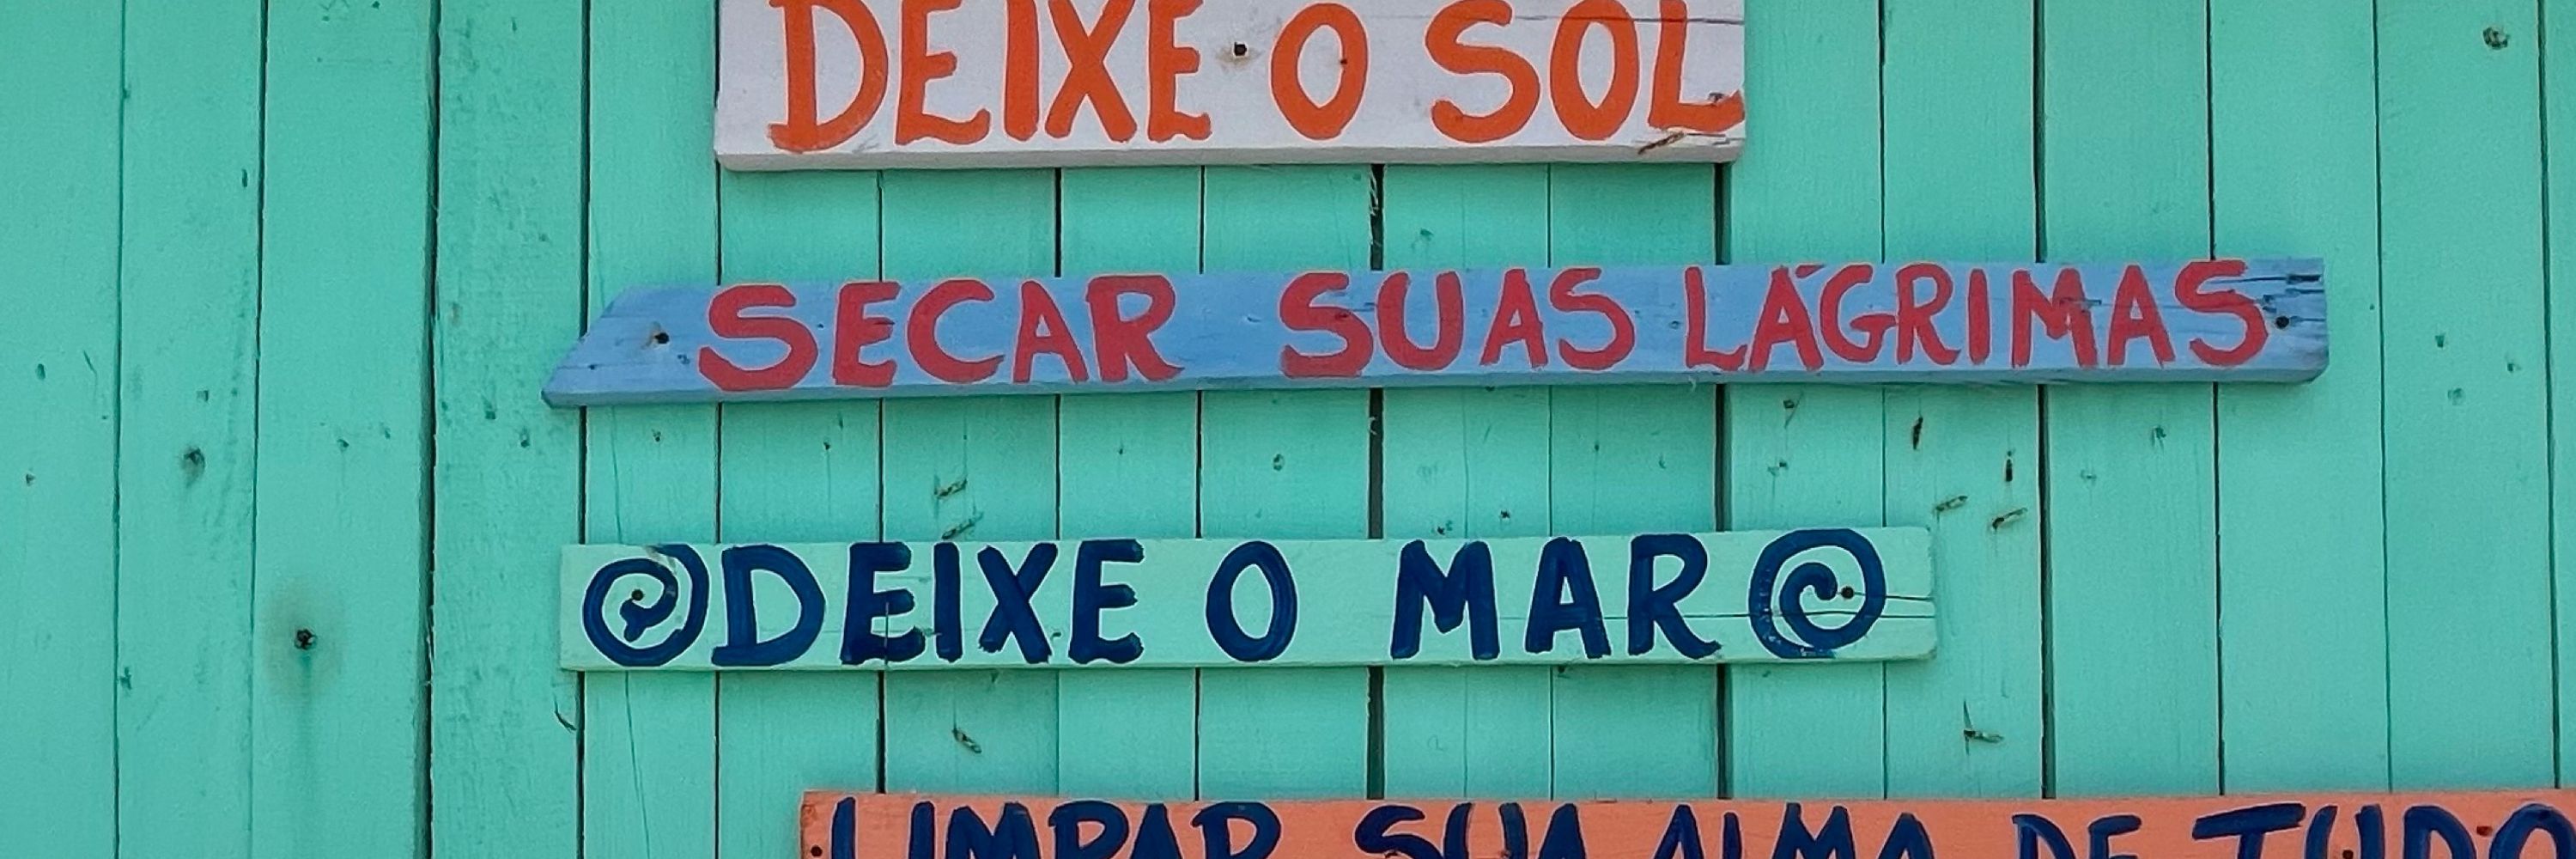 DEIXE O SOL
SECAR SUAS LÁGRIMAS
DEIXE O MAR
LIMPAR SUA ALMA DE TUDO